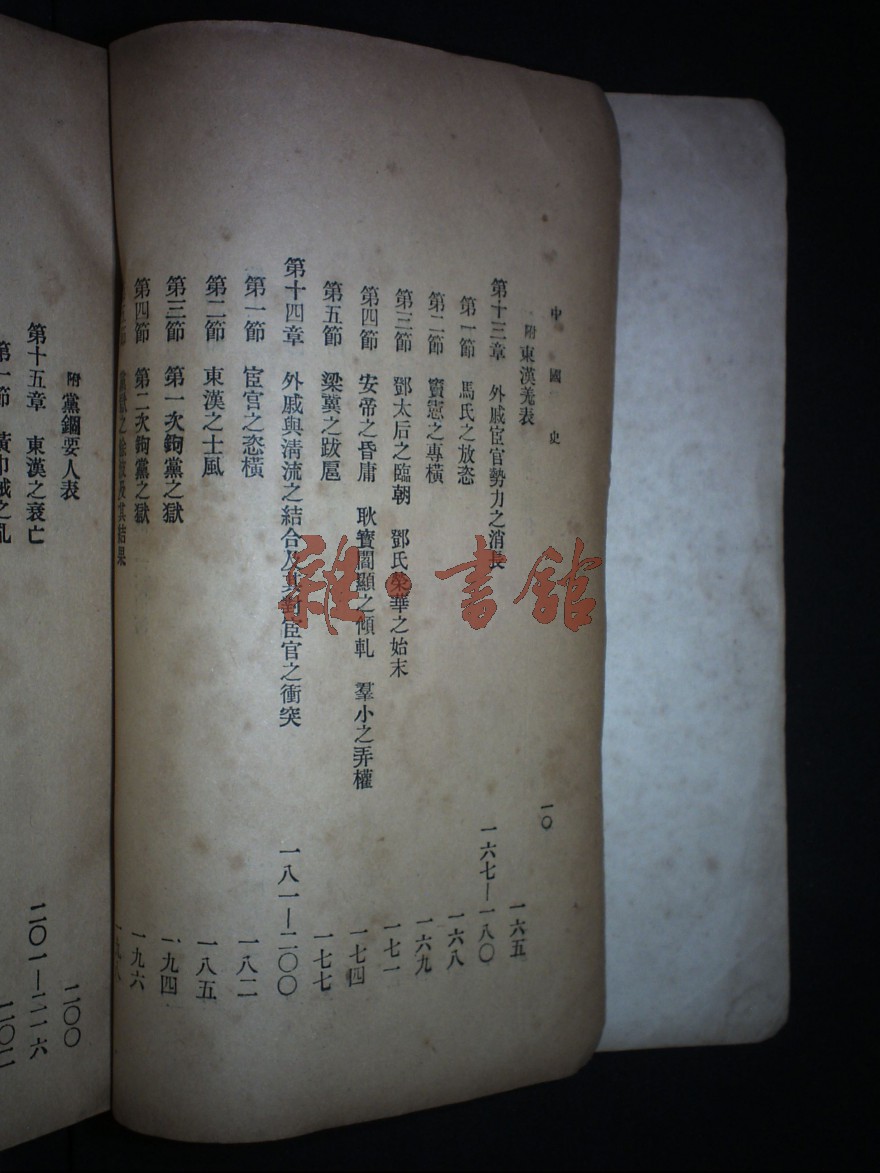 中國史
一〇
附 東漢羌表 一六五
第十三章 外戚宦官勢力之消長 一六七—一八〇
第一節 馬氏之放恣 一六八
第二節 竇憲之專橫 一六九
第三節 鄧太后之臨朝 鄧氏榮華之始末 一七一
第四節 安帝之昏庸 耿寶閻顯之傾軋 羣小之弄權 一七四
第五節 梁冀之跋扈 一七七
第十四章 外戚與清流之結合及其對宦官之衝突 一八一—二〇〇
第一節 宦官之恣橫 一八二
第二節 東漢之士風 一八五
第三節 第一次鉤黨之獄 一九四
第四節 第二次鉤黨之獄 一九六
節 黨獄之餘波及其結果 一九八
附 黨錮要人表 二〇〇
第十五章 東漢之衰亡 二〇一—二一六
第一節 黃巾賊之亂 二〇二
雜·書館